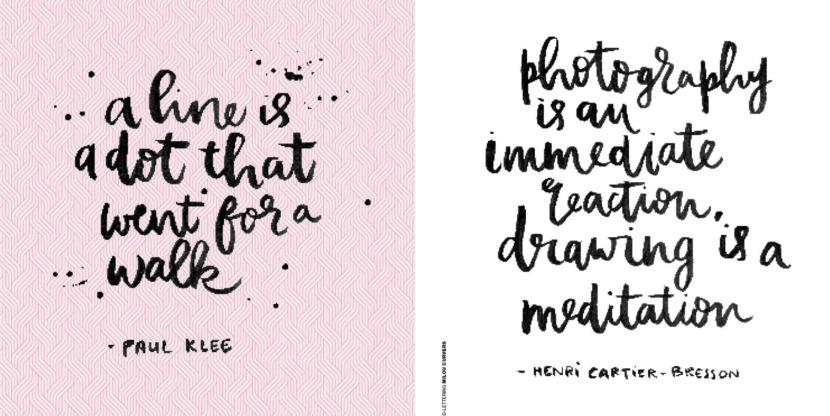 a line is
a dot that
went for a
walk
- PAUL KLEE
photography
is an
immediate
reaction,
drawing is a
meditation
- HENRI CARTIER-BRESSON
D-LETTERING MILOU CURVERS